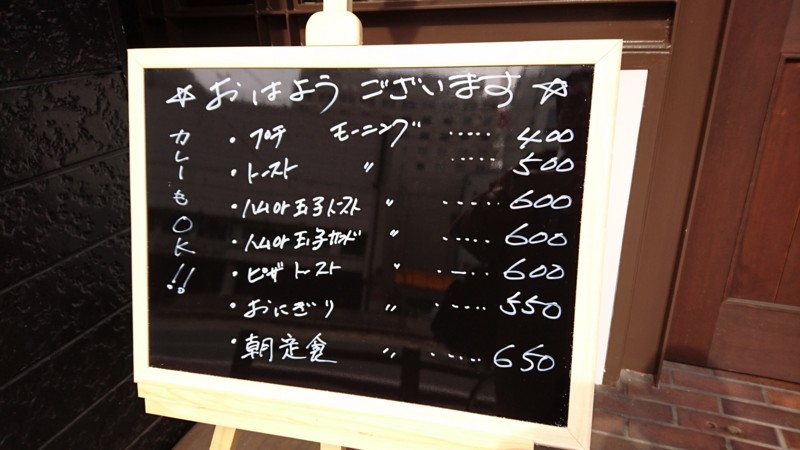 ☆おはようございます☆
カレーもOK!!
・プチ モーニング ‥‥‥ 400
・トースト 〃 ‥‥‥ 500
・ハムor玉子トースト 〃 ‥‥‥ 600
・ハムor玉子サンド 〃 ‥‥‥ 600
・ピザトースト 〃 ‥‥‥ 600
・おにぎり 〃 ‥‥‥ 550
・朝定食 〃 ‥‥‥ 650